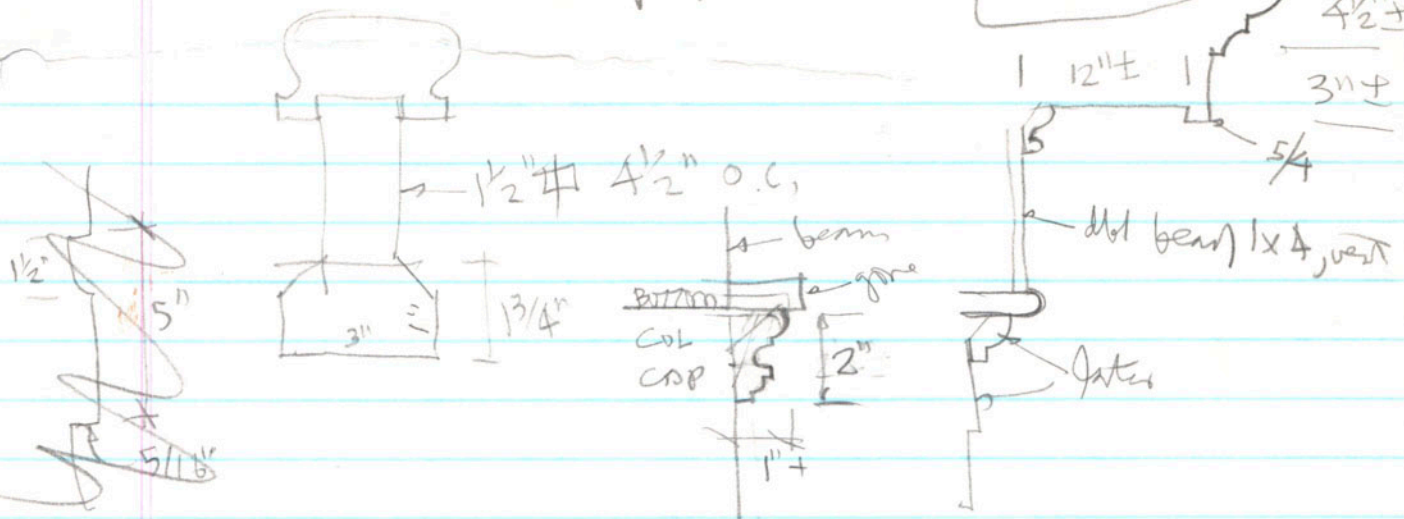 4½"±
12"±
3"±
5/4
1½" ⌗ 4½" O.C,
beam
dbl beam 1x4, vert
1½"
gone
BOTTOM
5"
3"
1¾"
COL
CAP
2"
later
5/16"
1"+